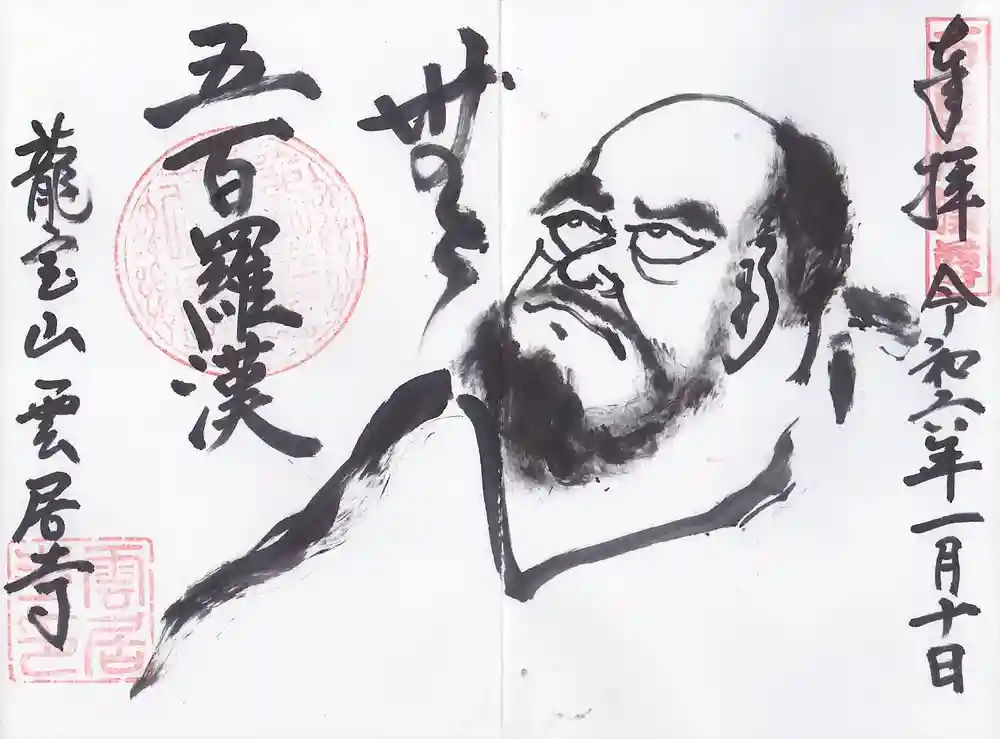 奉拝 令和六年一月十日
五百羅漢
龍宝山 雲居寺